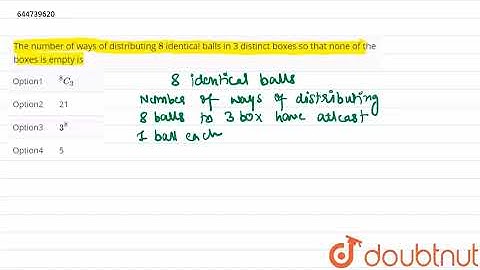 644739620
The number of ways of distributing 8 identical balls in 3 distinct boxes so that none of the
boxes is empty is
Option1 ⁸C₃
Option2 21
Option3 3⁸
Option4 5
8 identical balls
Number of ways of distributing
8 balls to 3 box have atleast
1 ball each
doubtnut